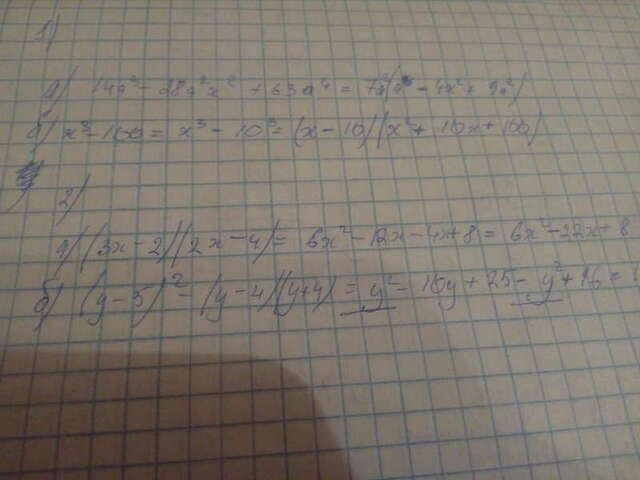 1)
а) 14a³ - 28a²x² + 63a⁴ = 7a²( - 4x² + 9a²)
б) x³ - 100 = x³ - 10³ = (x - 10)(x² + 10x + 100)
2)
а) (3x - 2)(2x - 4) = 6x² - 12x - 4x + 8 = 6x² - 22x + 8
б) (y - 5)² - (y - 4)(y + 4) = y² - 10y + 25 - y² + 16 =